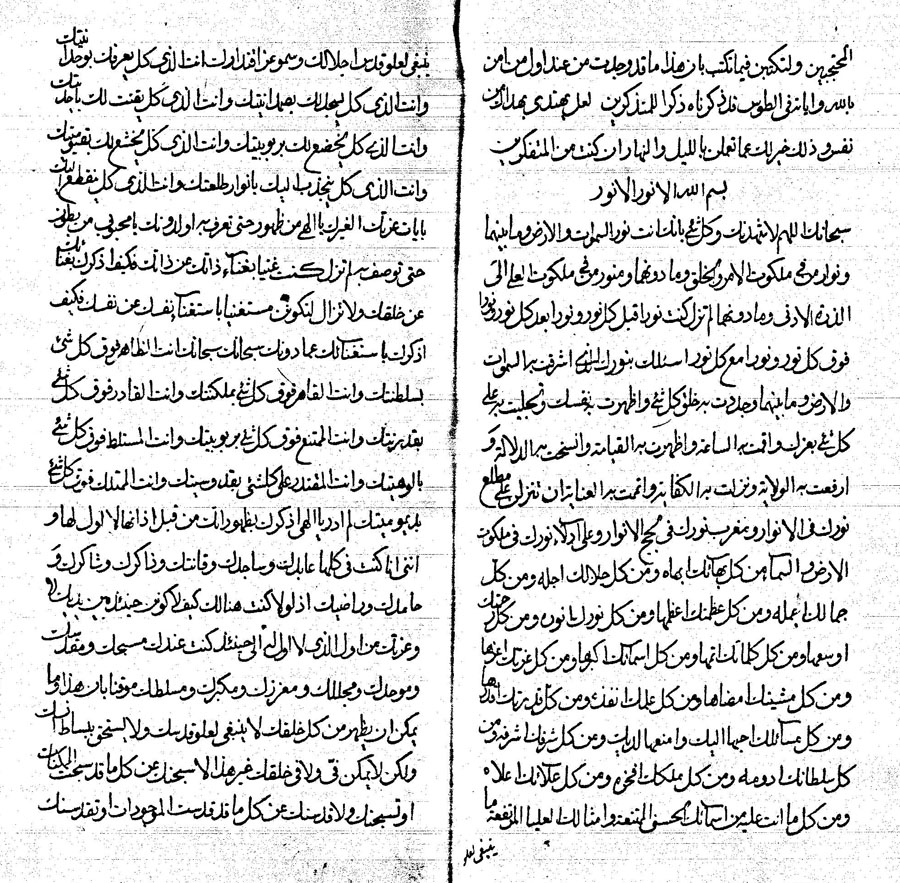 المحتجبين ولتكتبن فيما تكتب بان هذا ما قد وجدت من عند اول من امن
بالله واياته في الطور قد ذكرناه ذكرا للمتذكرين لعل يهتدي بهداك من
نفس وذلك خير لك عما تعملن بالليل والنهار ان كنت من المتفكرين
بسم الله الانور الانور
سبحانك اللهم لاشهدنك وكل شئ بانك انت نور السموات والارض وما بينهما
ونوار من في ملكوت الامر والخلق وما دونهما ومنور من في ملكوت العلى الى
الذرة الادنى وما دونهما لم تزل كنت نورا قبل كل نور ونورا بعد كل نور ونورا
فوق كل نور ونورا مع كل نور اسئلك بنورك الذي اشرقت به السموات
والارض وما بينهما وجددت به خلق كل شئ واظهرت به نفسك وتجليت به على
كل شئ بعزك واقمت به الساعة واظهرت به القيامة وانسخت به الدلالة و
ارفعت به الولاية ونزلت به الكفاية واتممت به العناية ان تنزلن على مطلع
نورك في الانوار ومغرب نورك في مبهج الانوار وعلى ادلاء نورك في ملكوت
الارض والسماء من كل بهائك ابهاه ومن كل جلالك اجله ومن كل
جمالك اجمله ومن كل عظمتك اعظمها ومن كل نورك انوره ومن كل رحمتك
اوسعها ومن كل كلماتك اتمها ومن كل اسمائك اكبرها ومن كل عزتك اعزها
ومن كل مشيتك امضاها ومن كل علمك انفذه ومن كل قدرتك اقدرها
ومن كل مسائلك احبها اليك وامنعها لديك ومن كل شرفك اشرفه ومن
كل سلطانك ادومه ومن كل ملكك افخره ومن كل علائك اعلاه
ومن كل ما انت عليه من اسمائك الحسنى الممتنعة وامثالك العليا المرتفعة ما
ينبغي لعلو
ينبغي لعلو قدس اجلالك وسمو عز اقتدارك انت الذي كل يعرفك بوحدانيتك
وانت الذي كل يسجد لك بصمدانيتك وانت الذي كل يقنت لك
وانت الذي كل يخضع لك بربوبيتك وانت الذي كل يخشع لك بقيوميتك
وانت الذي كل ينجذب اليك بانوار طلعتك وانت الذي كل ينقطع
بايات عزتك الغيرك يا الهي من ظهور حتى تعرف به اولدونك يا محبوبي من بطون
حتى توصف به لم تزل كنت غنيا بغناء ذاتك عن ذاتك فكيف اذكرك بغنائك
عن خلقك ولا تزال لتكونن مستغنيا باستغناء نفسك عن نفسك فكيف
اذكرك باستغنائك عما دونك سبحانك سبحانك انت الظاهر فوق كل شئ
بسلطنتك وانت القاهر فوق كل شئ بملكتك وانت القادر فوق كل شئ
بقدرتك وانت الممتنع فوق كل شئ بربوبيتك وانت المتسلط فوق كل شئ
بالوهيتك وانت المقتدر على كلشئ بقدوسيتك وانت الممتلك فوق كل شئ
بديموميتك لم ادر يا الهي اذكرك بظهوراتك من قبل اذ انها لا اول لها و
انني انا كنت في كلها عابدك وساجدك وقانتك وذاكرك وشاكرك و
حامدك وراضيك اذ لولا كنت هنالك كيف لاكونن حينئذ بين يديك لا
وعزتك من اول الذي لا اول له الى حينئذ كنت عندك مسبحك ومقدسك
وموحدك ومجللك ومعززك ومكبرك ومسلطك موقنا بان هذا وما
يمكن ان يظهر من كل خلقك لا ينبغي لعلو قدسك ولا يستحق ببساط انسك
ولكن لا يمكن في ولا في خلقك غير هذا الا سبحنك عن كل ما قد سبحك الممكنات
او تسبحنك ولا قدسنك عن كل ما قد قدست الموجودات او تقدسنك